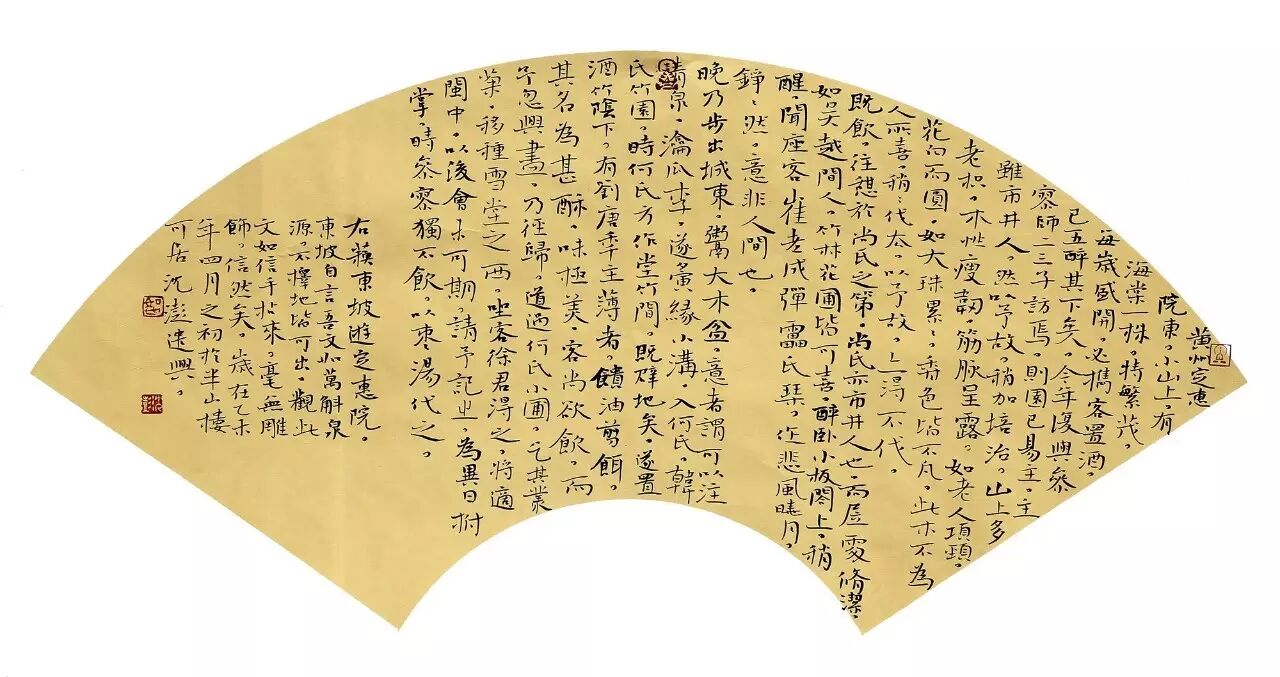 黄州定惠
院東，小山上，有
海棠一株，特繁茂。
每歲盛開，必攜客置酒，
已五醉其下矣。今年復與參
寥師二三子訪焉，則園已易主，主
雖市井人，然以予故，稍加培治。山上多
老枳，木性瘦韌，筋脈呈露，如老人項頸，
花白而圓，如大珠累，香色皆不凡。此木不為
人所喜，稍〻伐去，以予故，亦得不伐。
既飲，往憩於尚氏之第，尚氏亦市井人也，而居處脩潔，
如吴越間人，竹林花圃皆可喜，醉卧小板閣上，稍
醒，聞座客崔老成彈靁氏琴，作悲風曉月，
錚〻然，意非人間也。
晚乃步出城東，鬻大木盆，意者謂可以注
清泉，瀹瓜李，遂夤緣小溝，入何氏、韓
氏竹園，時何氏方作堂竹間，既辟地矣，遂置
酒竹陰下，有劉唐年主薄者，饋油煎餌，
其名為甚酥，味極美，客尚欲飲，而
予忽興盡，乃徑歸，道過何氏小圃，乞其叢
橘，移種雪堂之西，坐客徐君得之，將適
閩中，以後會未可期，請予記之，為異日拊
掌，時參寥獨不飲，以棗湯代之。
右蘇東坡遊定惠院。
東坡自言吾文如萬斛泉
源，不擇地皆可出，觀此
文如信手拈來，毫無雕
飾，信然矣，歲在乙未
年四月之初於半山樓
可居沈澎遣興。